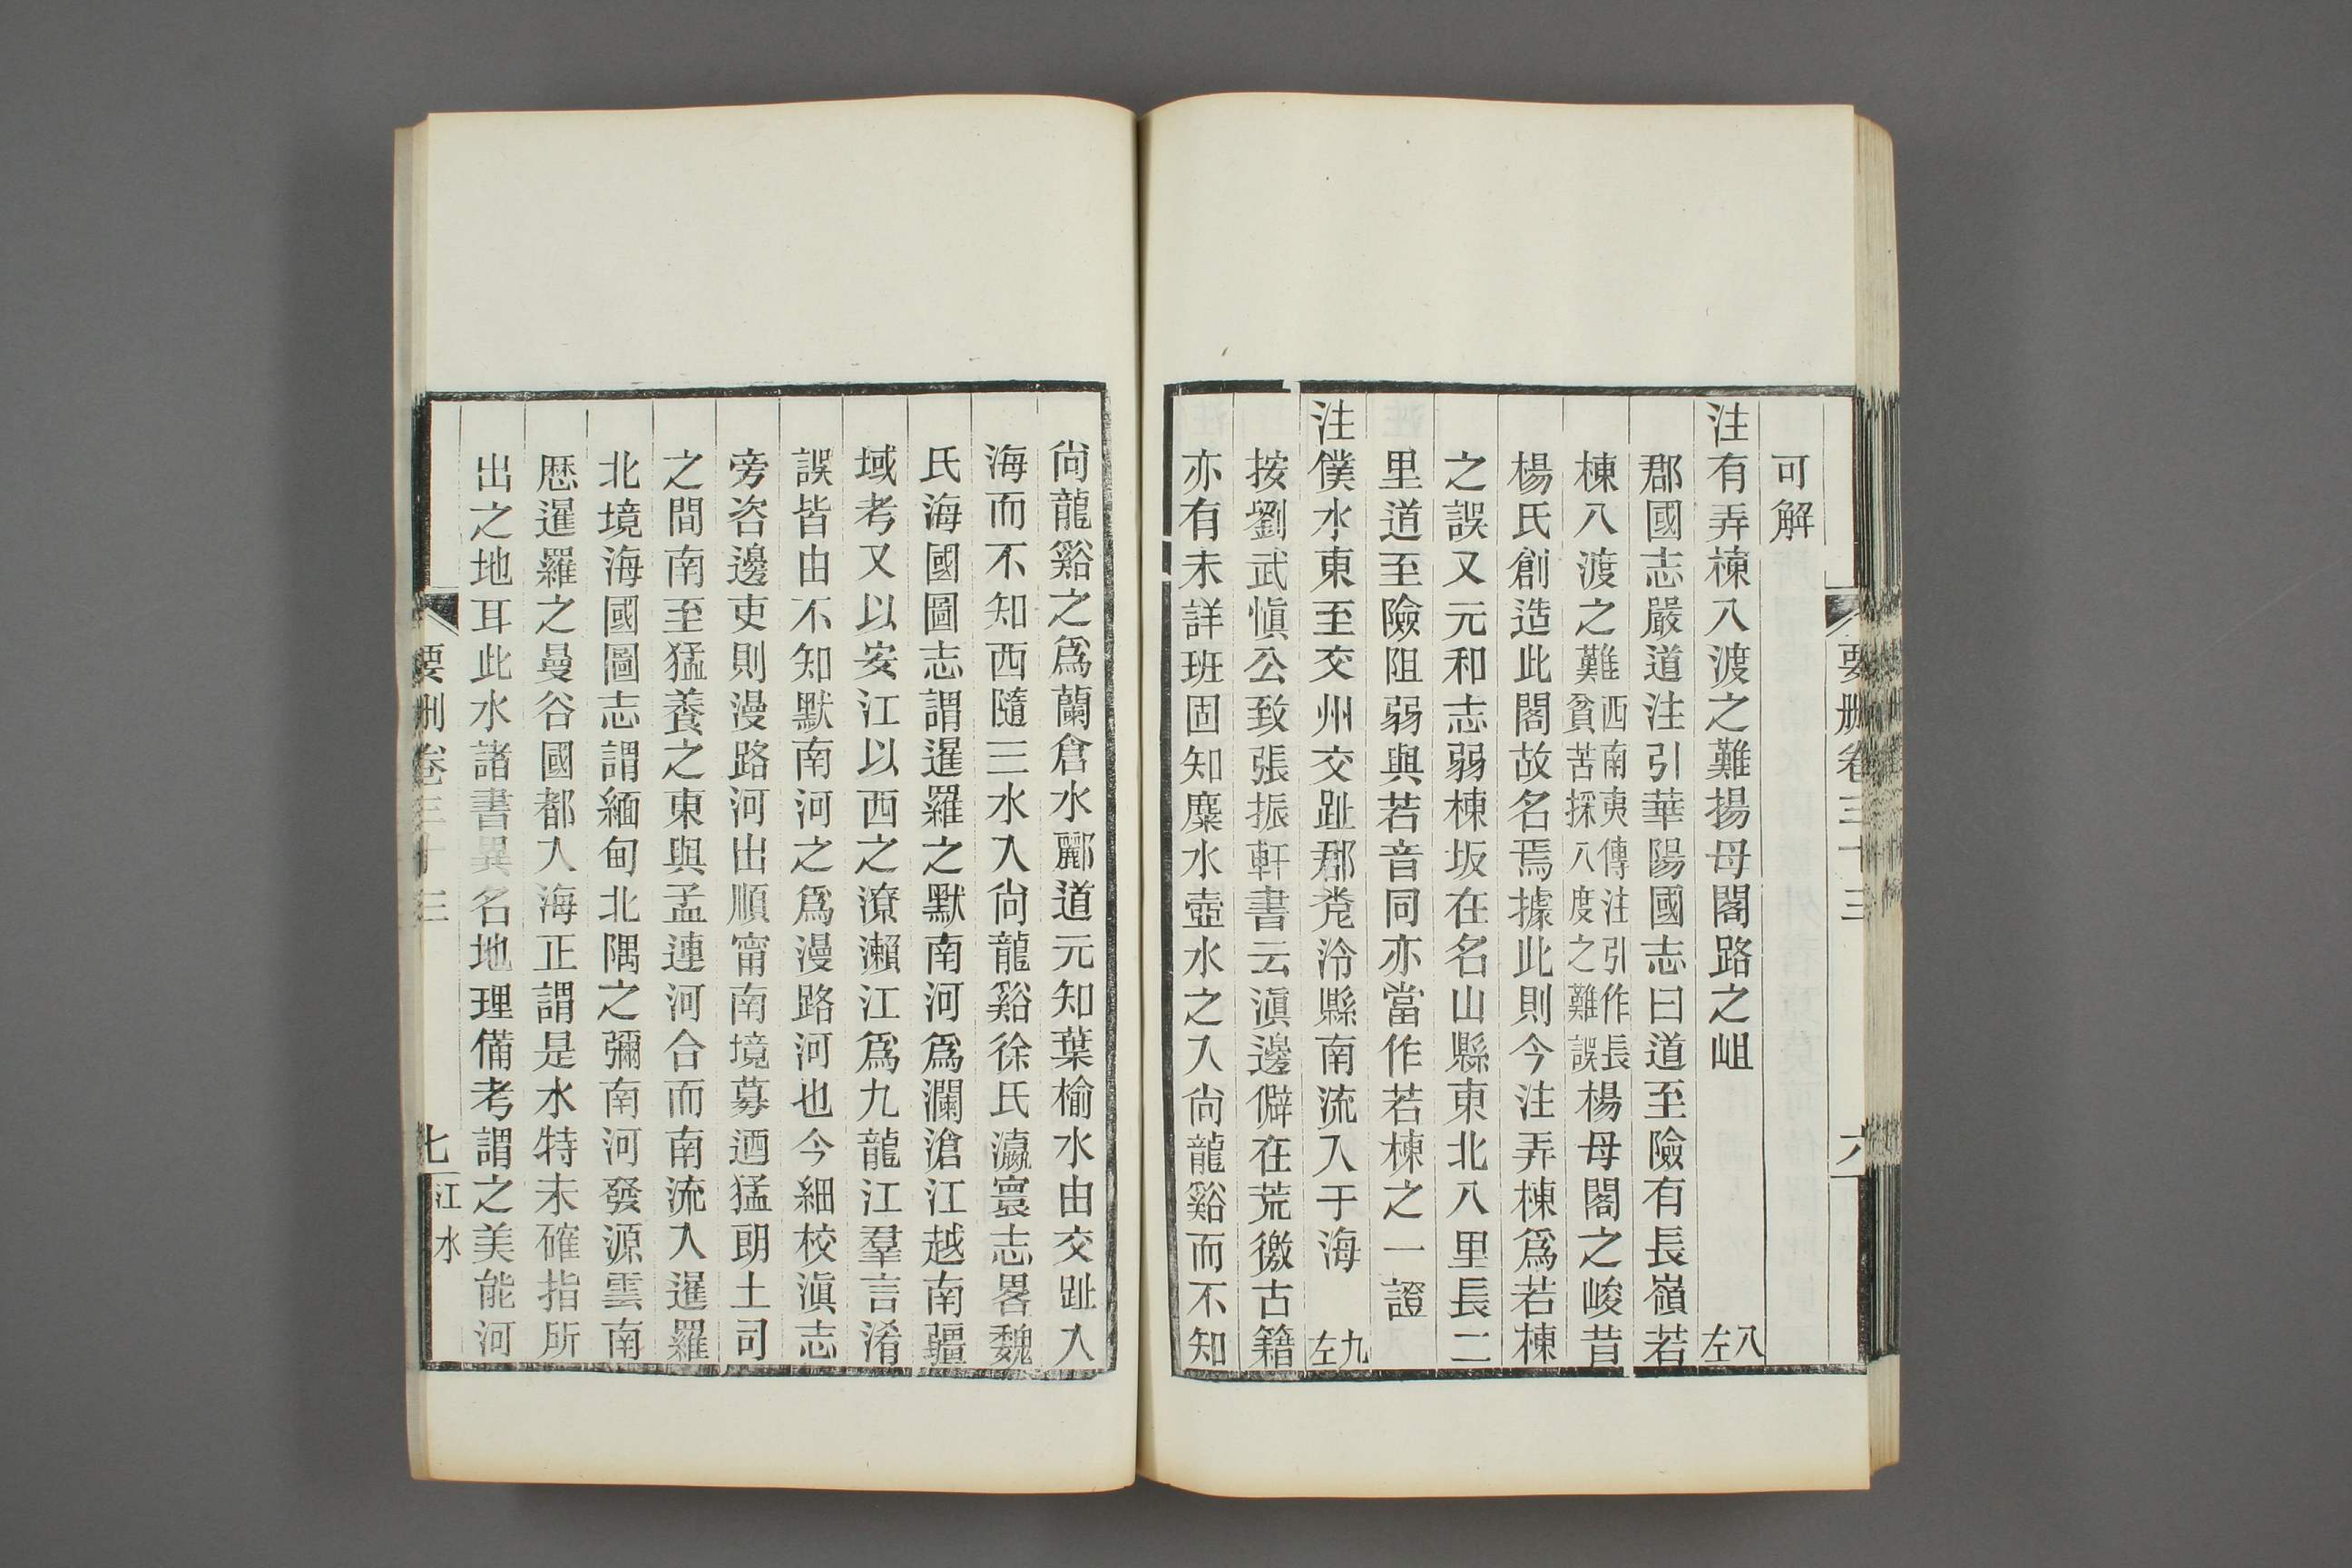 要刪卷三十三
六
可解
注有弄棟八渡之難揚母閣路之岨 八左
郡國志嚴道注引華陽國志曰道至險有長嶺若
棟八渡之難西南夷傳注引作長貧苦採八度之難誤楊母閣之峻昔
楊氏創造此閣故名焉據此則今注弄棟爲若棟
之誤又元和志弱棟坂在名山縣東北八里長二
里道至險阻弱與若音同亦當作若棟之一證
注僕水東至交州交趾郡𣳶泠縣南流入于海 九左
按劉武愼公致張振軒書云滇邊僻在荒徼古籍
亦有未詳班固知麋水壺水之入尙龍谿而不知
尙龍谿之爲蘭倉水酈道元知葉榆水由交趾入
海而不知西隨三水入尙龍谿徐氏瀛寰志畧魏
氏海國圖志謂暹羅之默南河爲瀾滄江越南疆
域考又以安江以西之潦瀨江爲九龍江羣言淆
誤皆由不知默南河之爲漫路河也今細校滇志
旁咨邊吏則漫路河出順甯南境募迺猛朗土司
之間南至猛養之東與孟連河合而南流入暹羅
北境海國圖志謂緬甸北隅之彌南河發源雲南
歷暹羅之曼谷國都入海正謂是水特未確指所
出之地耳此水諸書異名地理備考謂之美能河
要刪卷三十三
七
江水